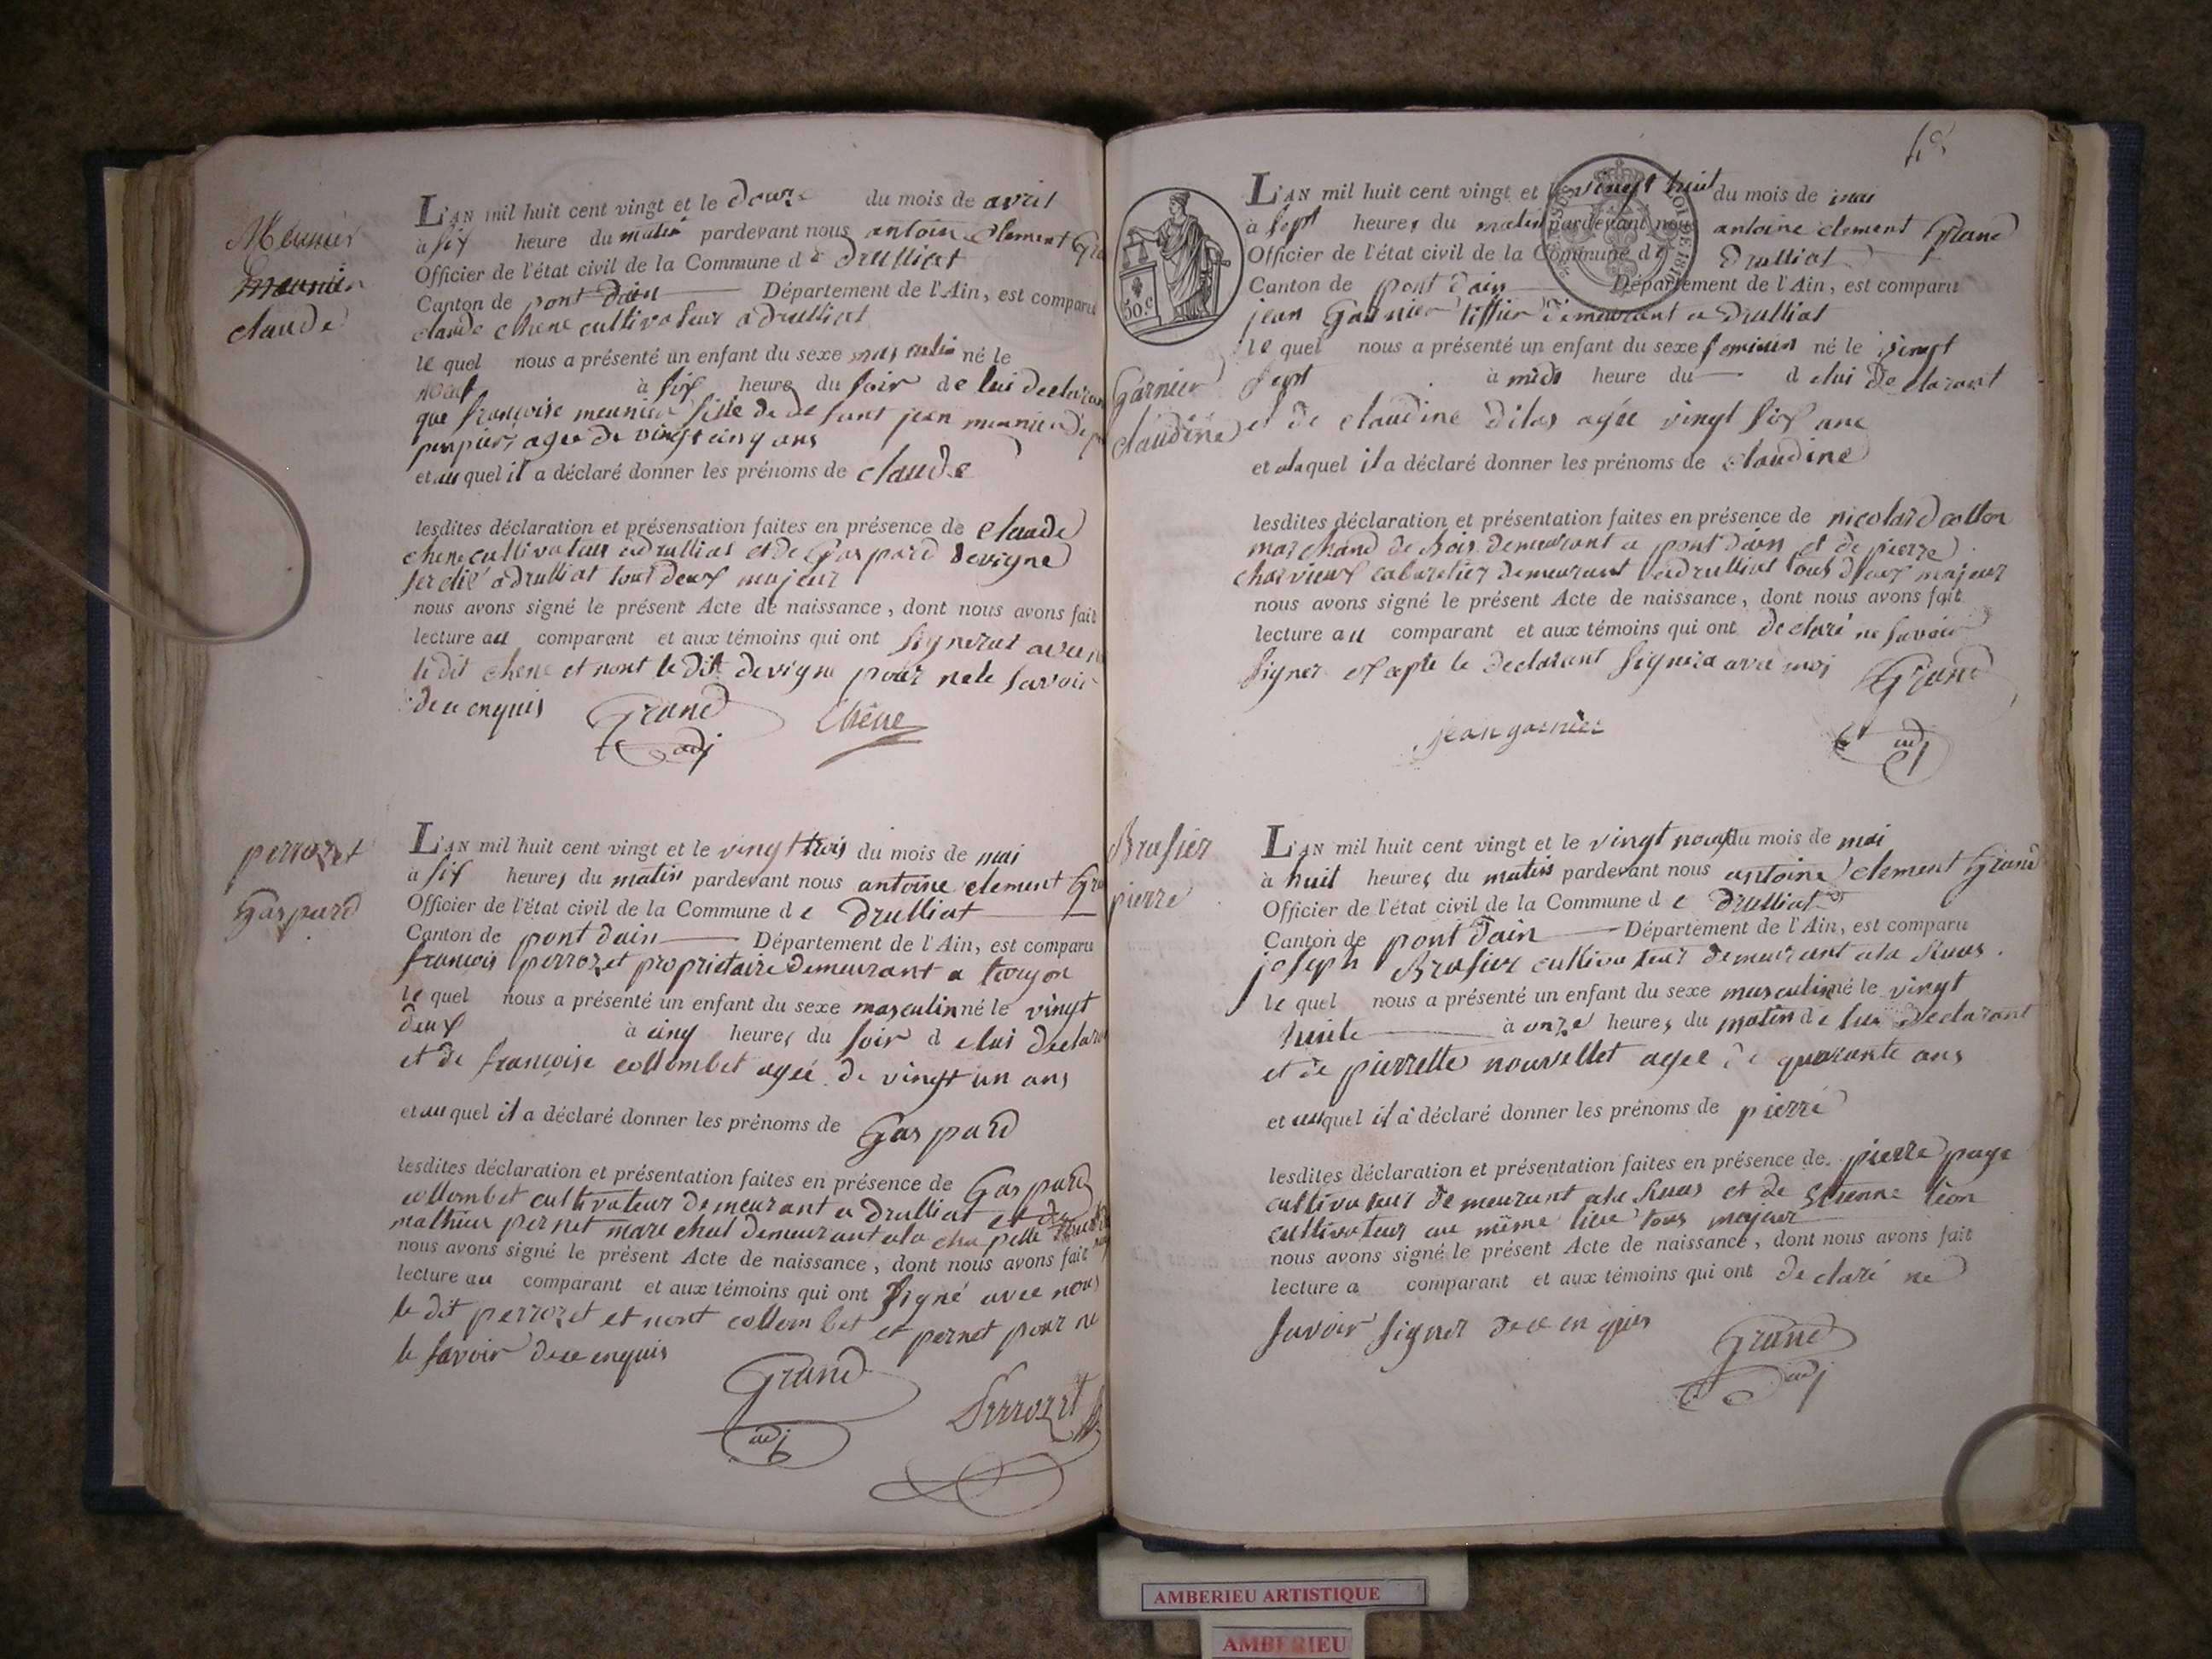 Meunier
claude
L'AN mil huit cent vingt et le douze du mois de avril
à six heure du matin pardevant nous antoine Clement
Officier de l'état civil de la Commune de Drulliat
Canton de pont dain Département de l'Ain, est comparu
claude chene cultivateur a drulliat
le quel nous a présenté un enfant du sexe masculin né le
à six heure du soir de lui declarant
que françoise meunier fille de defunt jean meunier
agee de vingt cinq ans
et au quel il a déclaré donner les prénoms de claude
lesdites déclaration et présensation faites en présence de Claude
chene cultivateur a drulliat et de Gaspard devigne
a drulliat tout deux majeur
nous avons signé le présent Acte de naissance, dont nous avons fait
lecture au comparant et aux témoins qui ont
le dit chene et nont le dit devigne pour ne le savoir
de ce enquis Grand Chêne
adj
perrozet
Gaspard
L'AN mil huit cent vingt et le vingt trois du mois de mai
à six heures du matin pardevant nous antoine clement
Officier de l'état civil de la Commune de Drulliat
Canton de pont dain Département de l'Ain, est comparu
françois perrozet proprietaire demeurant a
le quel nous a présenté un enfant du sexe masculin né le vingt
deux à cinq heures du soir de lui declarant
et de françoise collombet agée de vingt un ans
et au quel il a déclaré donner les prénoms de Gaspard
lesdites déclaration et présentation faites en présence de Gaspard
collombet cultivateur demeurant a Drulliat et de
mathieu pernet marechal demeurant a la chapelle
nous avons signé le présent Acte de naissance, dont nous avons fait
lecture au comparant et aux témoins qui ont signé avec nous
le dit perrozet et nont collombet et pernet pour ne
le savoir de ce enquis
Grand
adj
Perrozet
50.c
LOI DE 1816
L'AN mil huit cent vingt et le vingt huit du mois de mai
à sept heures du matin pardevant nous antoine clement Grand
Officier de l'état civil de la Commune de Drulliat
Canton de pont dain Département de l'Ain, est comparu
jean Garnier tissier demeurant a Drulliat
le quel nous a présenté un enfant du sexe feminin né le vingt
sept à midi heure du de lui declarant
Garnier
claudine
et de claudine dilas agée vingt six ans
et a la quel il a déclaré donner les prénoms de claudine
lesdites déclaration et présentation faites en présence de
marchand de bois demeurant a pont dain et de pierre
charvieux cabaretier demeurant a drulliat tous deux majeur
nous avons signé le présent Acte de naissance, dont nous avons fait
lecture au comparant et aux témoins qui ont declaré ne savoir
signer et le declarant signera avec moi Grand
jean garnier
adj
Brasier
pierre
L'AN mil huit cent vingt et le vingt neuf du mois de mai
à huit heures du matin pardevant nous antoine clement Grand
Officier de l'état civil de la Commune de Drulliat
Canton de pont dain Département de l'Ain, est comparu
joseph Brasier cultivateur demeurant a la
le quel nous a présenté un enfant du sexe masculin né le vingt
huite à onze heures du matin de lui declarant
et de pierrette nouvellet agee de quarante ans
et auquel il a déclaré donner les prénoms de pierre
lesdites déclaration et présentation faites en présence de pierre page
cultivateur demeurant a la et de Etienne léon
cultivateur au même lieu tous majeur
nous avons signé le présent Acte de naissance, dont nous avons fait
lecture a comparant et aux témoins qui ont declaré ne
savoir signer de ce enquis
Grand
adj
AMBERIEU ARTISTIQUE
AMBERIEU